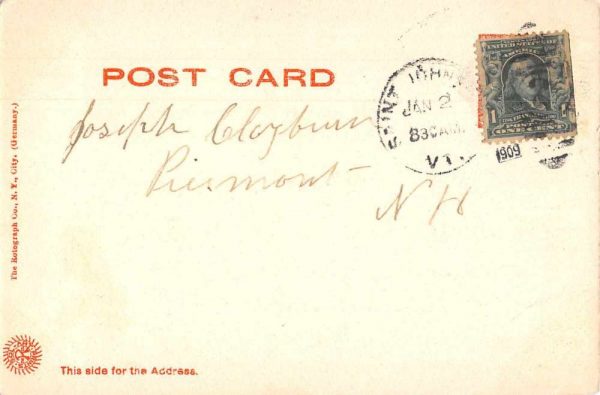 POST CARD
SAINT JOHNS
JAN 2
830 AM
VT.
1909
UNITED STATES OF AMERICA
1 1
ONE CENT
Joseph Clogburn
Piermont
N H
The Rotograph Co., N. Y., City. (Germany.)
This side for the Address.